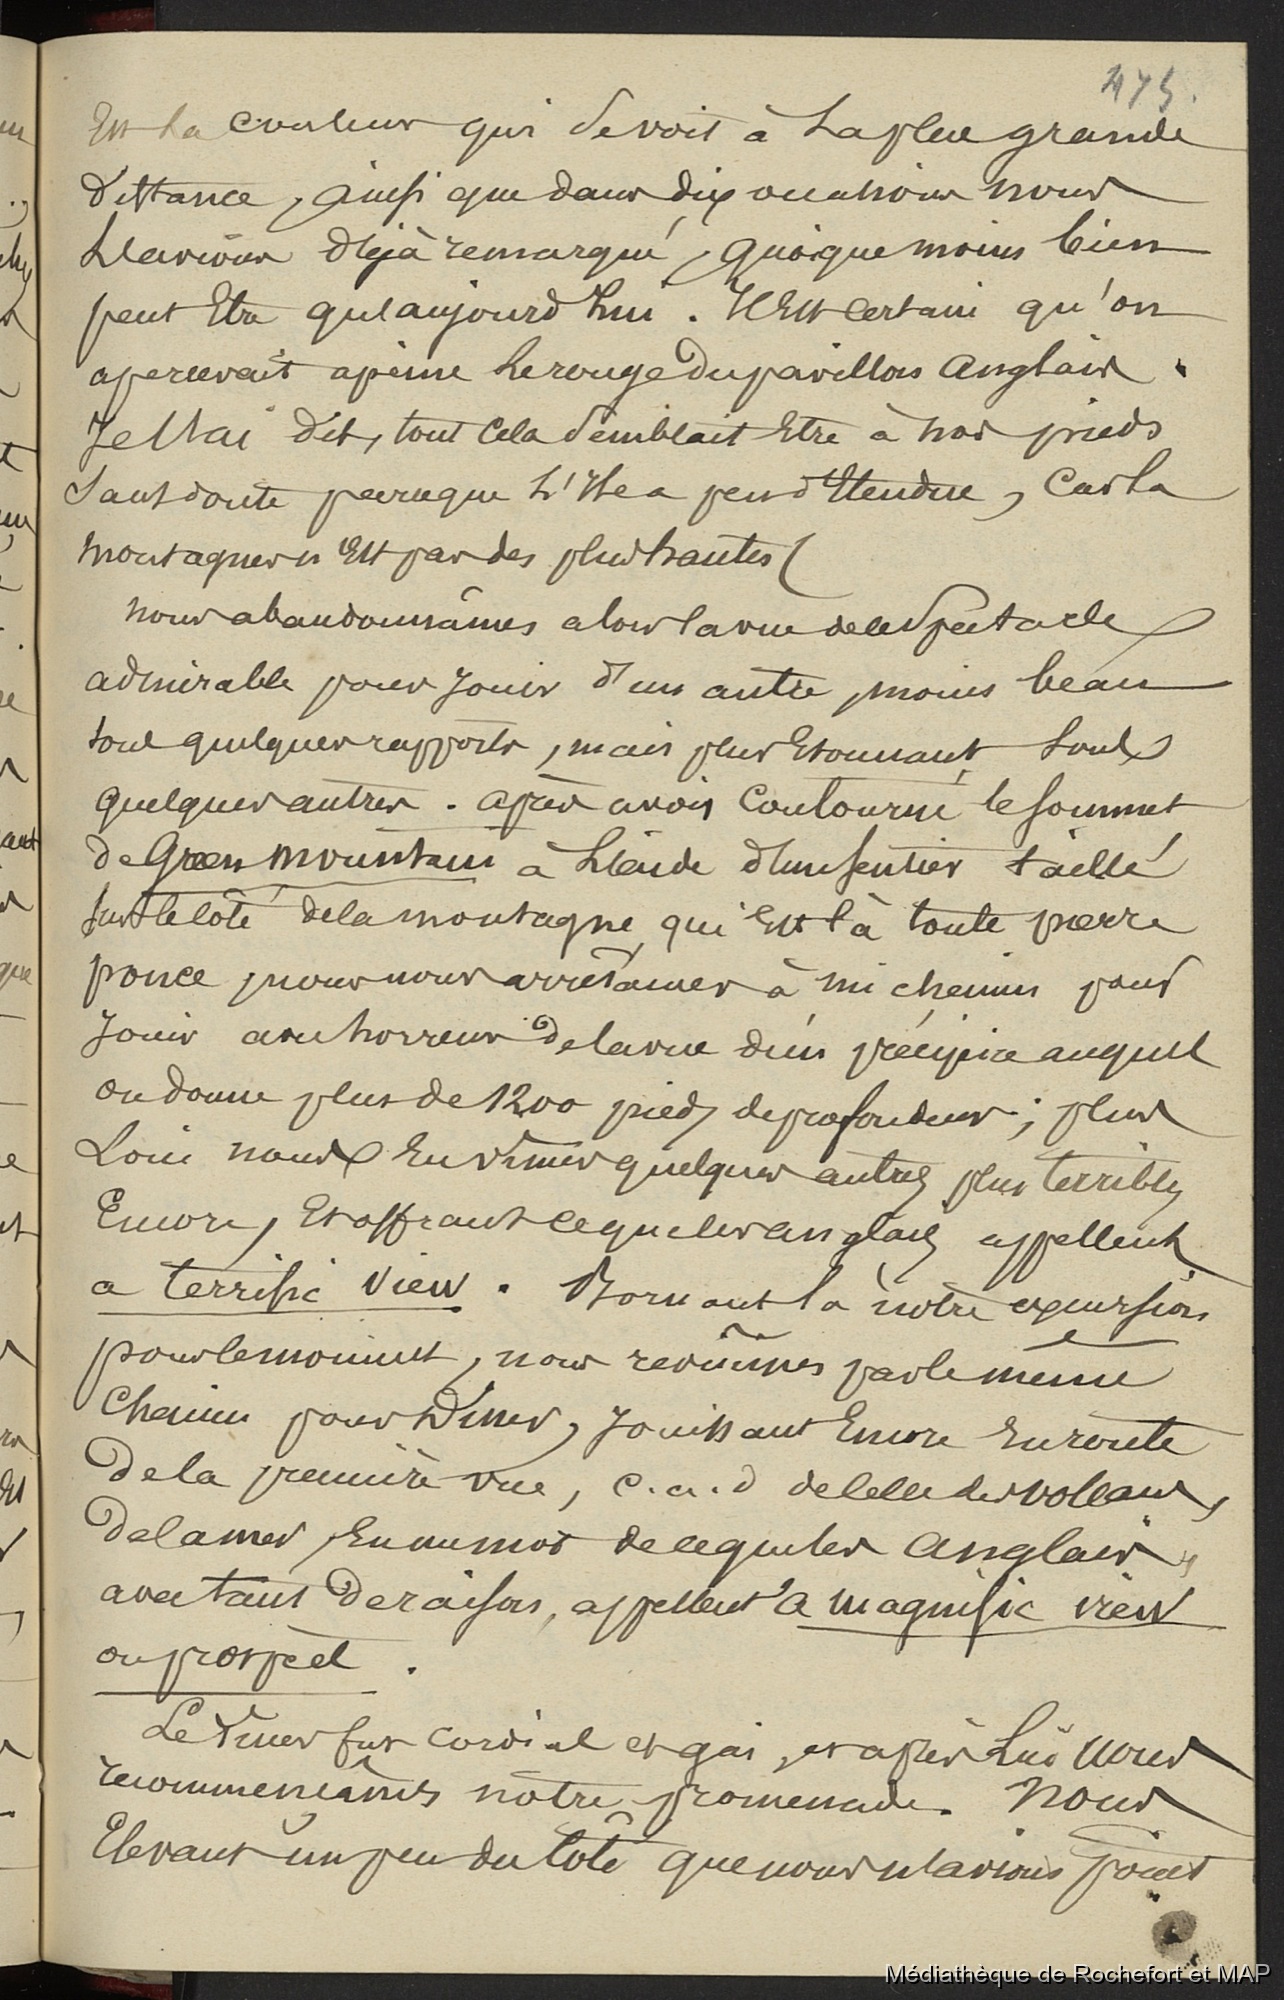 475.
Est la couleur qui se voit à la plus grande
distance, ainsi que dans dix occasions nous
l'avions déjà remarqué, quoique moins bien
peut etre qu'aujourd'hui. Il Est certain qu'on
apercevait apeine le rouge du pavillon anglais.
Je l'ai dit, tout cela semblait Etre à nos pieds
sans doute parceque l'Ile a peu d'Etendue, car la
montagne n'Est pas des plus hautes (
nous abandonnâmes alors la vue de ce spectacle
admirable pour jouir d'un autre, moins beau
sous quelques rapports, mais plus Etonnant sous
quelques autres. après avoir contourné le sommet
de Green Mountain à l'aide d'un sentier taillé
sur le côté de la montagne qui Est là toute pierre
ponce, nous nous arretames à mi chemin pour
jouir avec horreur de la vue d'un précipice auquel
on donne plus de 1200 pieds de profondeur; plus
Loin nous En vimes quelques autres plus terribles
Encore, Et offrant ce que les anglais appellent
a terrific view. Bornant là nôtre excursion
pour le moment, nous revînmes par le même
chemin pour diner, jouissant Encore En route
de la première vue, c.a.d de celle des volcans,
de la mer, En un mot de ce que les Anglais,
avec tant de raison, appellent a magnific view
ou prospect.
Le diner fut cordial et gai, et après lui nous
recommençâmes nôtre promenade. Nous
Elevant un peu du côté que nous n'avions point
Médiathèque de Rochefort et MAP